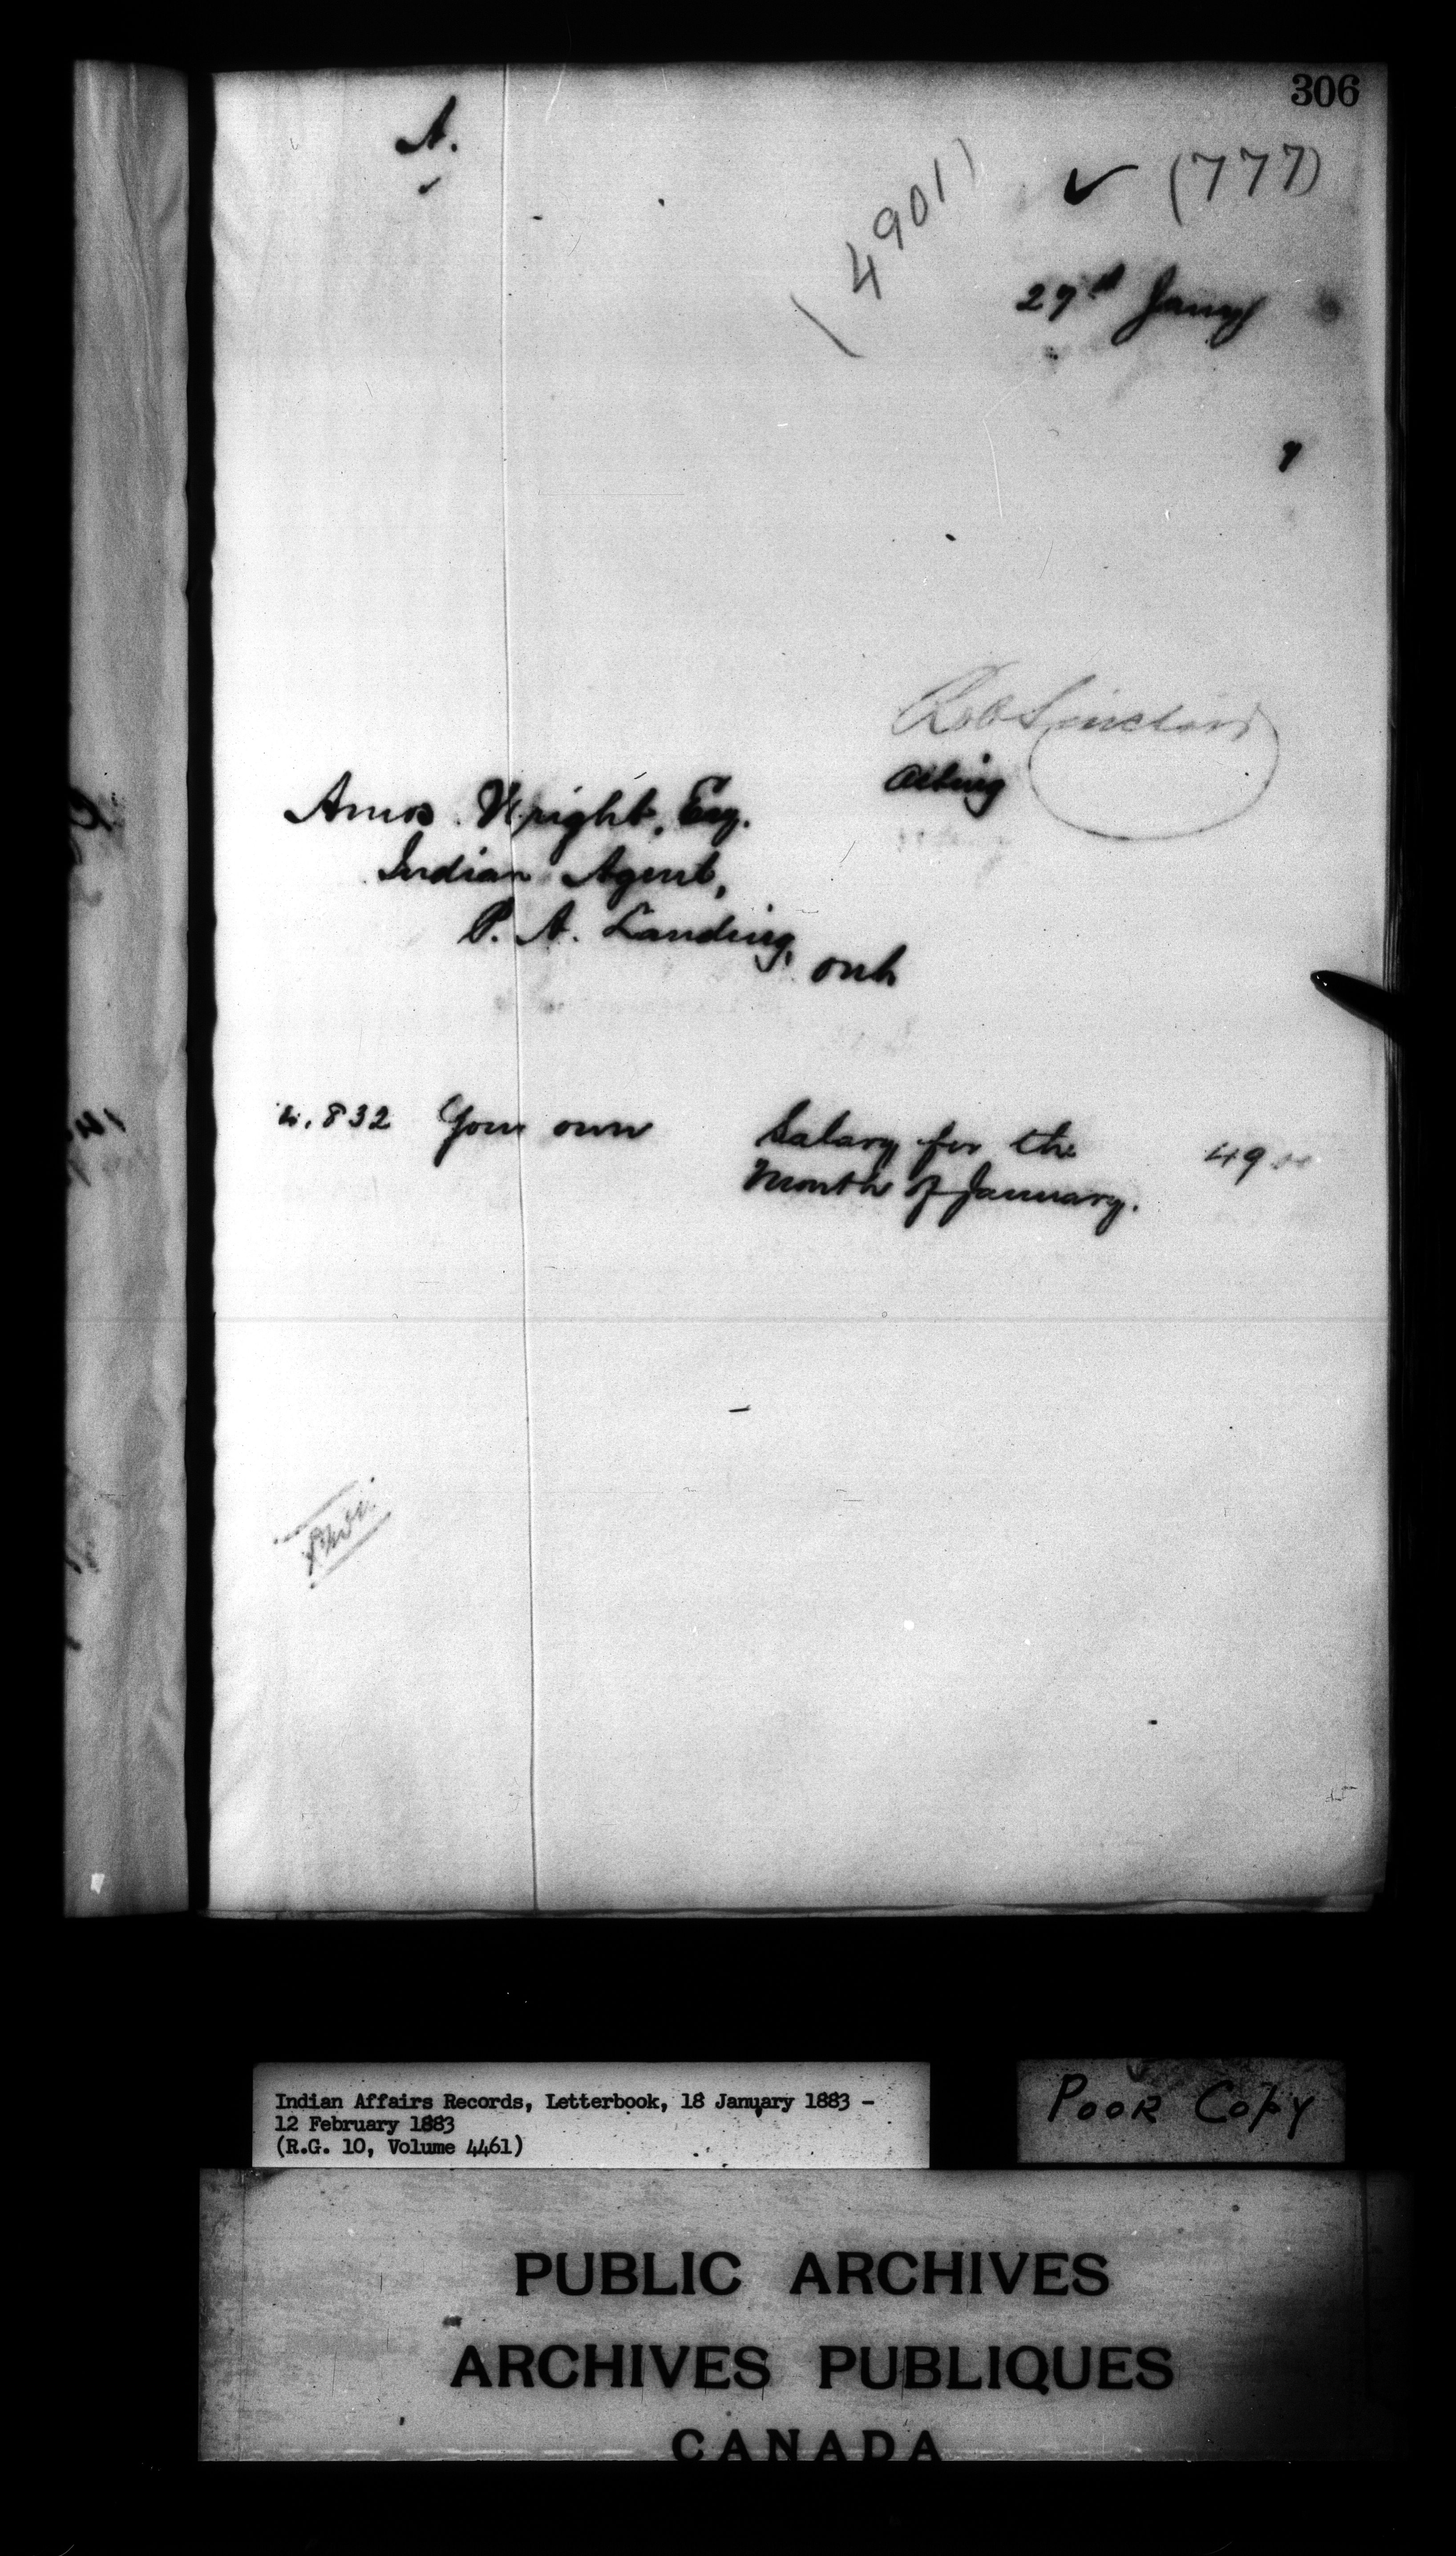 306
A.
(4901)
(777)
27th Jany
7
Robt Sinclair
Acting
Amos Wright, Esq.
Indian Agent,
P. A. Landing,
Ont
4.832 Your own Salary for the 49 00
Month of January.
Indian Affairs Records, Letterbook, 18 January 1883 -
12 February 1883
(R.G. 10, Volume 4461)
POOR COPY
PUBLIC ARCHIVES
ARCHIVES PUBLIQUES
CANADA